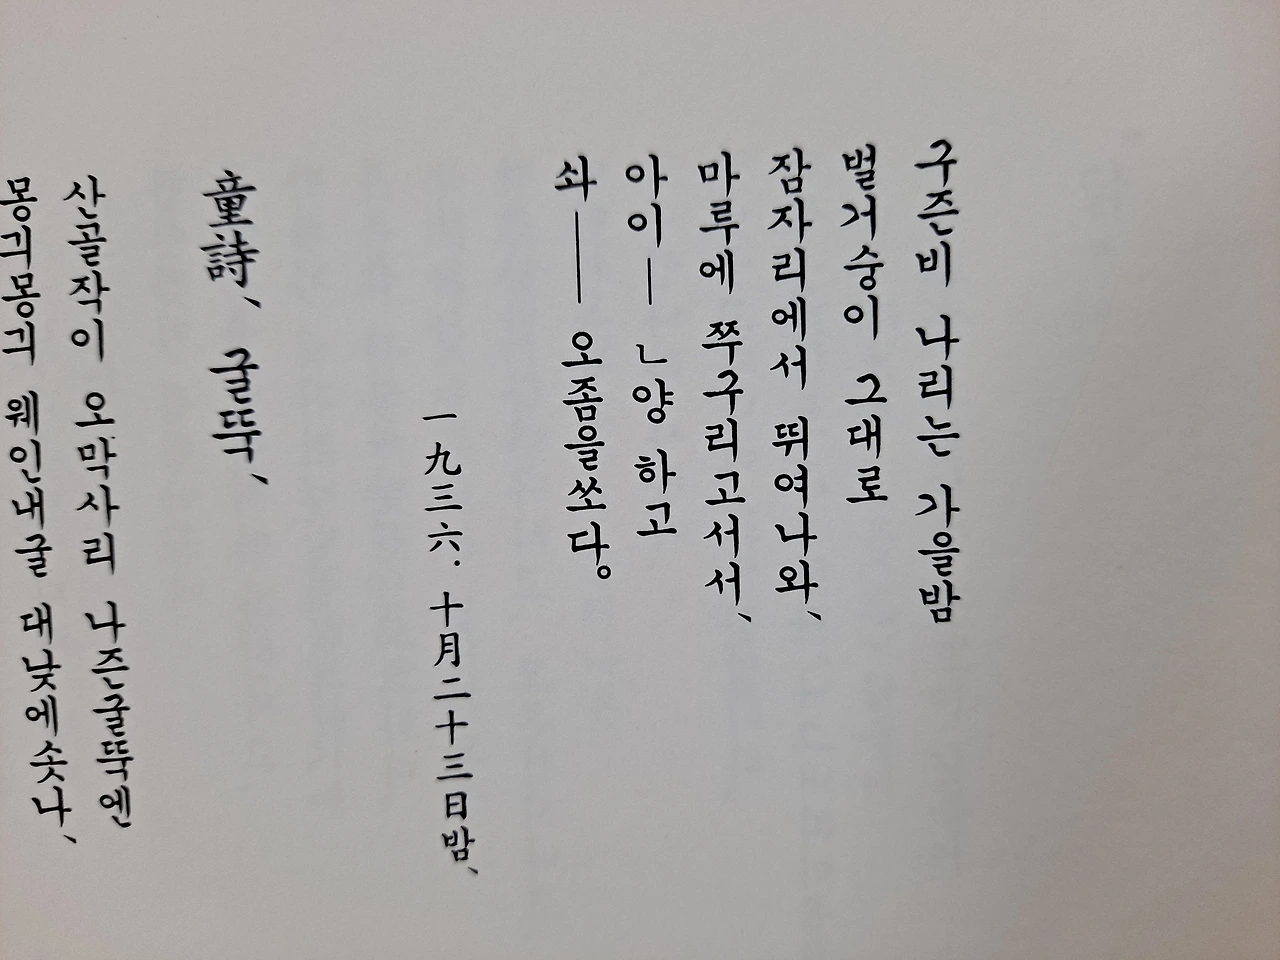 구즌비 나리는 가을밤
벌거숭이 그대로
잠자리에서 뛰여나와、
마루에 쭈구리고서서、
아이— ㄴ양 하고
솨—— 오좀을쏘다。
一九三六. 十月二十三日밤、
童詩、 굴뚝、
산골작이 오막사리 나즌굴뚝엔
몽긔몽긔 웨인내굴 대낮에솟나、